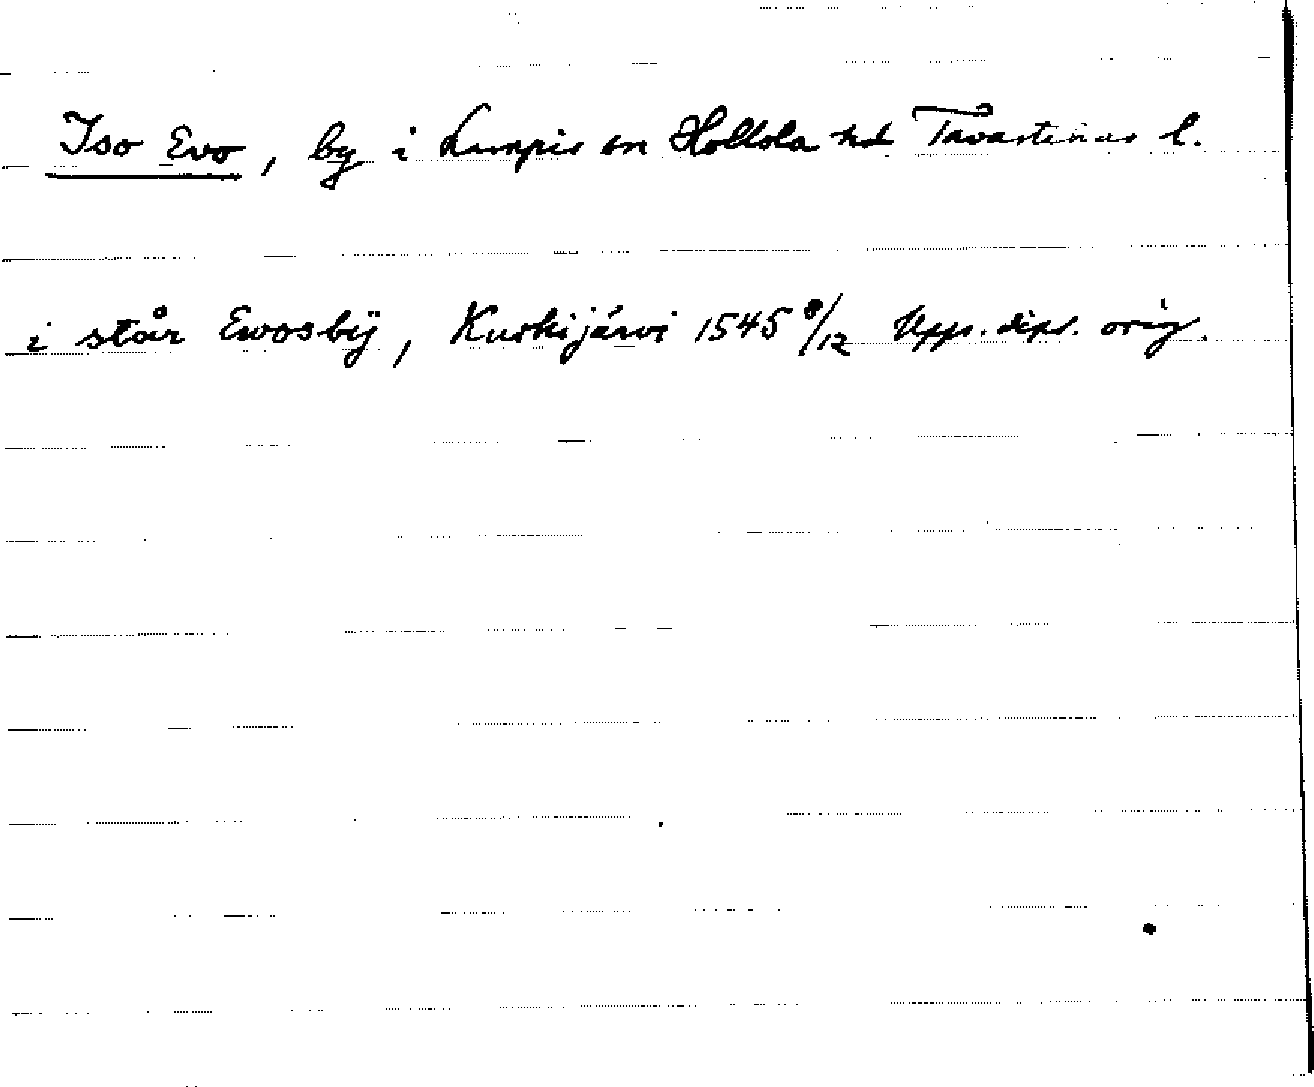 Iso Evo, by i Lampis sn Hollola hd Tavastehus l.
i står Ewosbÿ, Kurkijärvi 1545 8/12 Upps. dipl. orig.